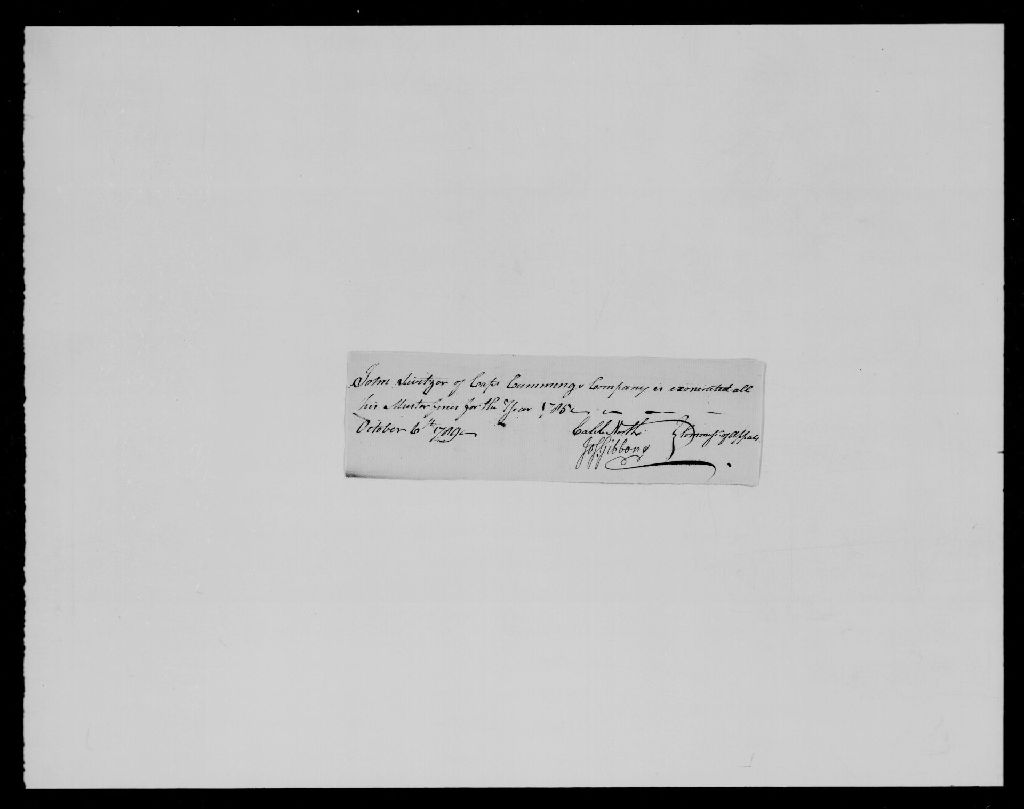 John of Capt Cummings Company is exonerated all
his Muster fines for the Year 1785
October 6th 1789
Caleb North
Jos Gibbons
Commissrs of Appeals